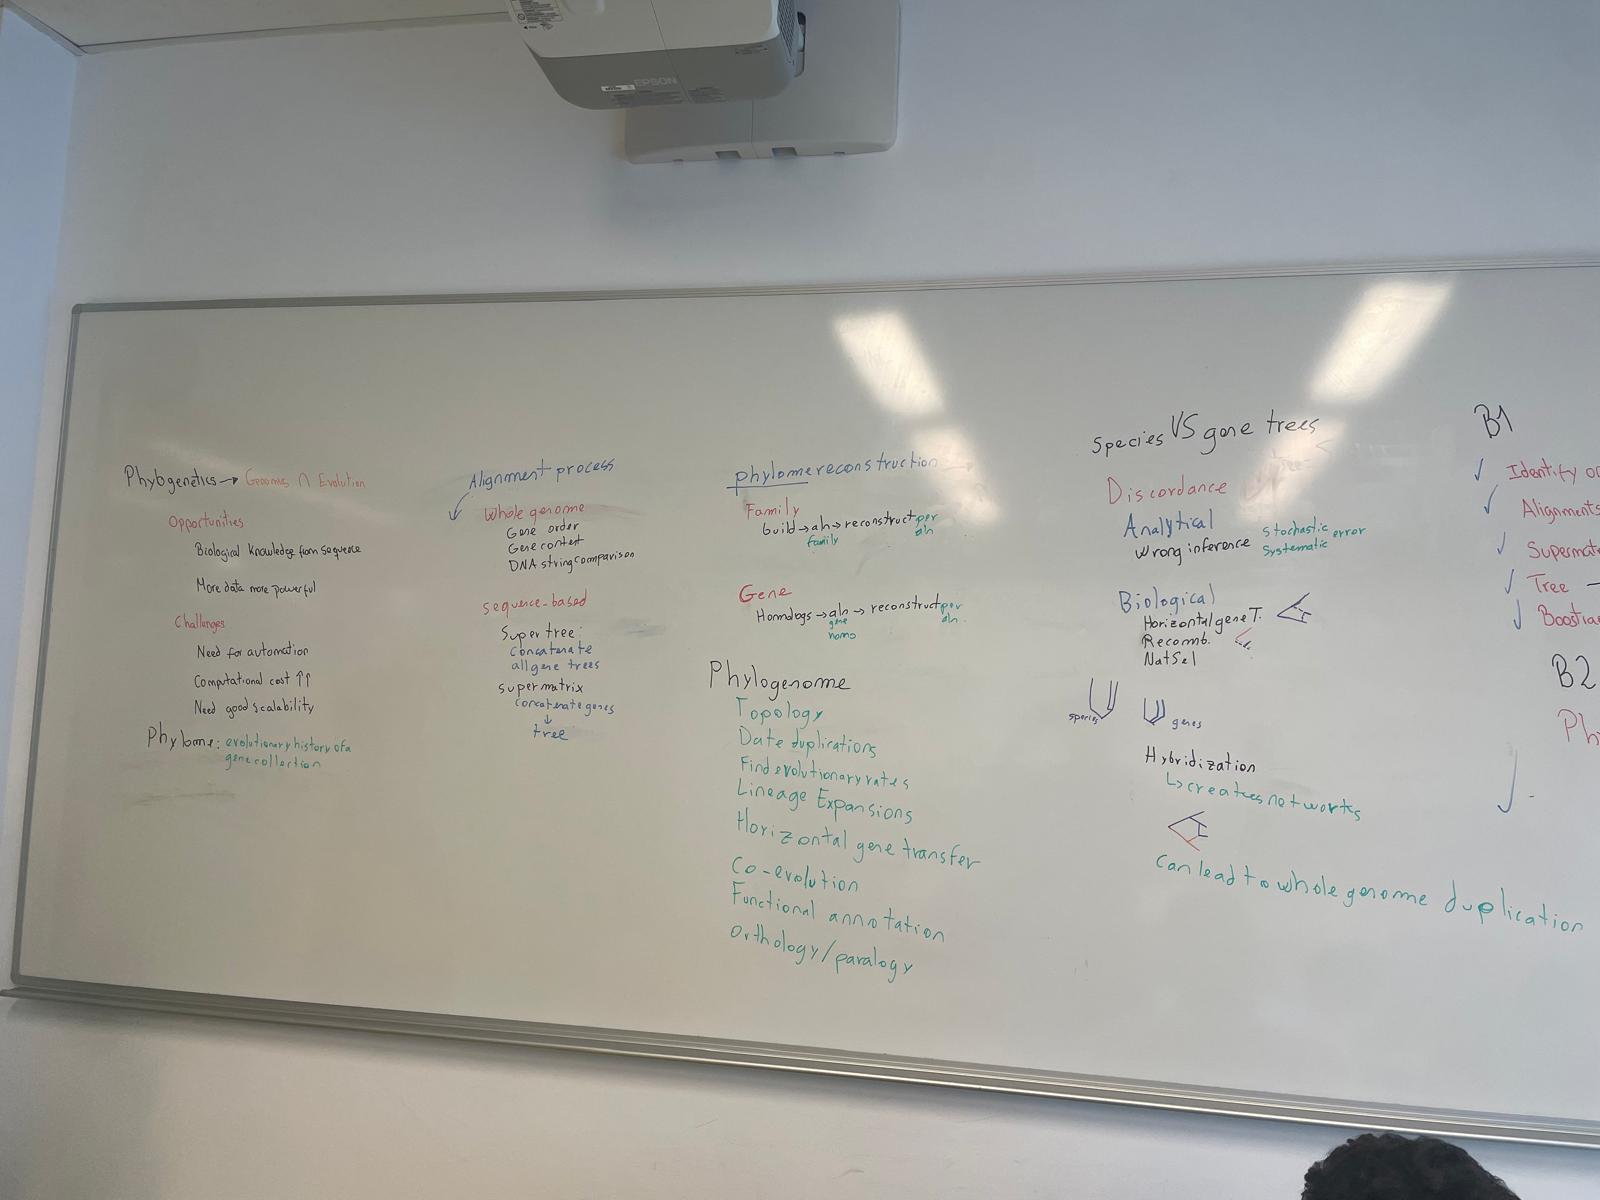 EPSON
Phylogenetics → Genomes ∩ Evolution
Opportunities
Biological knowledge from sequence
More data more powerful
Challenges
Need for automation
Computational cost ↑↑
Need good scalability
Phylome: evolutionary history of a
gene collection
Alignment process
Whole genome
Gene order
Gene content
DNA string comparison
sequence-based
Super tree:
concatenate
all gene trees
supermatrix
concatenate genes
↓
tree
phylome reconstruction
Family
build → aln → reconstruct per
family aln
Gene
Homologs → aln → reconstruct per
gene aln.
homo
Phylogenome
Topology
Date duplications
Find evolutionary rates
Lineage Expansions
Horizontal gene transfer
Co-evolution
Functional annotation
Orthology/paralogy
Species VS gene trees
Discordance
Analytical
Wrong inference Stochastic error
Systematic
Biological
Horizontal gene T.
Recomb.
NatSel
species genes
Hybridization
↳ creates networks
Can lead to whole genome duplication
B1
✓ Identify
✓ Alignments
✓
✓ Tree –
✓
B2